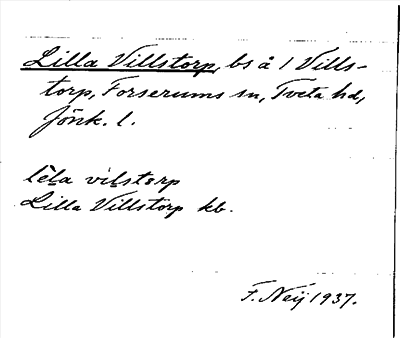 Lilla Villstorp, bs å 1 Vills-
torp, Forserums sn, Tveta hd,
Jönk. l.
lèla vilstorp
Lilla Villstorp kb.
F. Neij 1937.